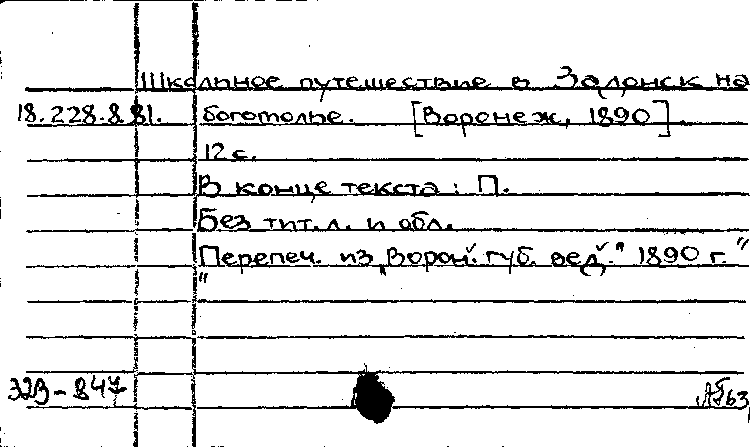 Школьное путешествие в Задонск на
18.228.8.81. богомолье. [Воронеж, 1890]
12 с.
В конце текста: П.
Без тит. л. и обл.
Перепеч. из „Ворон. губ. вед." 1890 г. "
"
32В-847